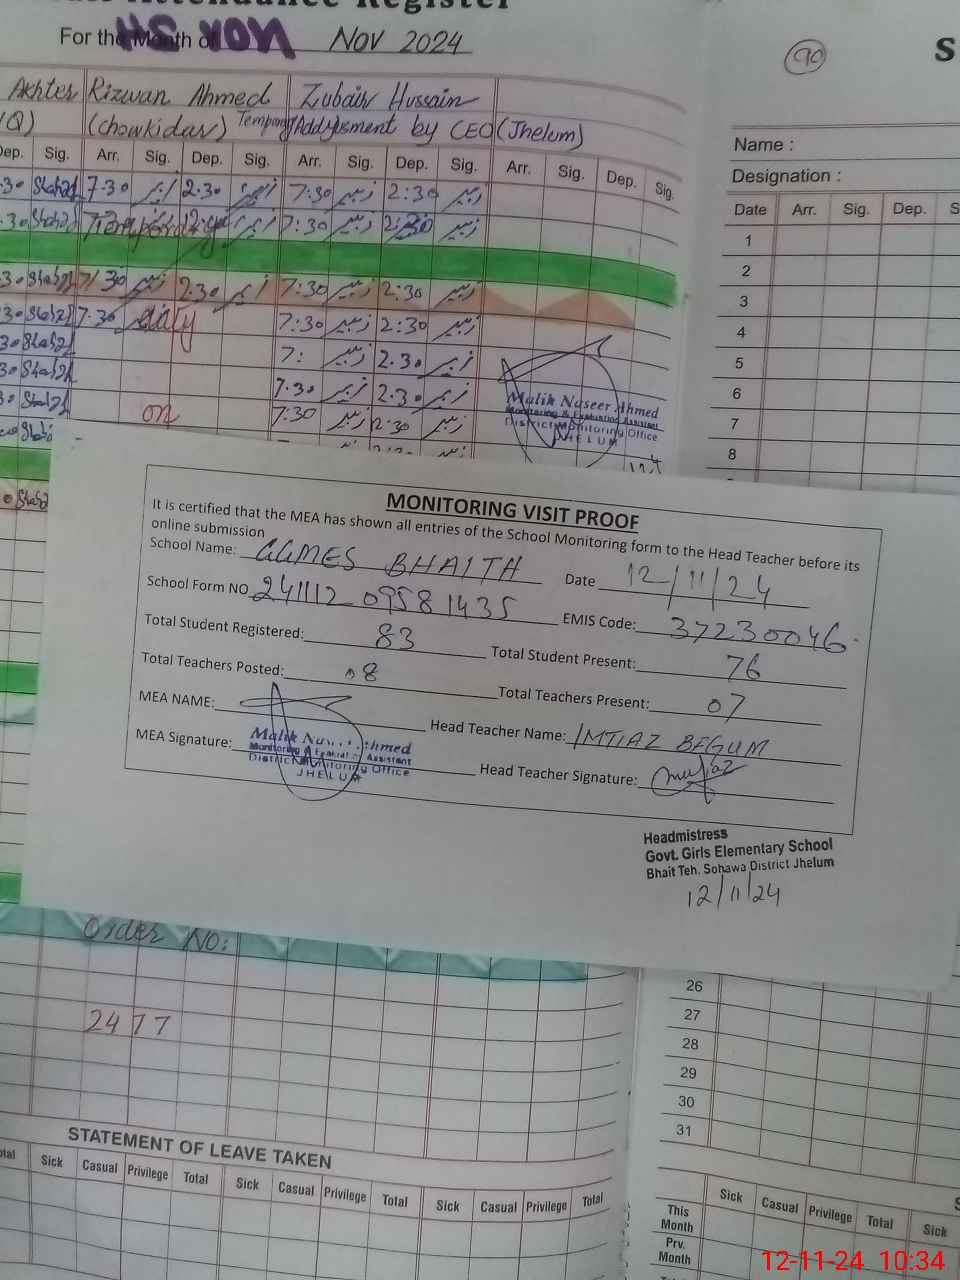 Attendance Register
For the Month of NOV 2024
90
S
Akhter Rizwan Ahmed Zubair Hussain
(Chowkidar) Temporary Addjusment by CEO (Jhelum)
Dep. Sig. Arr. Sig. Dep. Sig. Arr. Sig. Dep. Sig. Arr. Sig. Dep. Sig.
Name :
Designation :
Date Arr. Sig. Dep.
7.30 2.30 7:30 زبیر 2:30 زبیر
7:30 زبیر 2:30 زبیر
7:30 2:30 7:30 زبیر 2:30 زبیر
7:30 7:30 زبیر 2:30 زبیر
7: زبیر 2.30 زبیر
7.30 زبیر 2.30 زبیر
on 7:30 زبیر 2:30 زبیر
1
2
3
4
5
6
7
8
Malik Naseer Ahmed
Monitoring & Evaluation Assistant
District Monitoring Office
JHELUM
MONITORING VISIT PROOF
It is certified that the MEA has shown all entries of the School Monitoring form to the Head Teacher before its
online submission
School Name: GGMES BHAITH Date 12/11/24
School Form NO 241112 09581435 EMIS Code: 37230046.
Total Student Registered: 83 Total Student Present: 76
Total Teachers Posted: 08 Total Teachers Present: 07
MEA NAME: Head Teacher Name: IMTIAZ BEGUM
MEA Signature: Malik Naseer Ahmed
Monitoring & Evaluation Assistant
District Monitoring Office
JHELUM
Head Teacher Signature: Imtiaz
Headmistress
Govt. Girls Elementary School
Bhait Teh. Sohawa District Jhelum
12/11/24
Order No:
2477
26
27
28
29
30
31
STATEMENT OF LEAVE TAKEN
Sick Casual Privilege Total Sick Casual Privilege Total Sick Casual Privilege Total
Sick Casual Privilege Total Sick
This Month
Prv. Month
12-11-24 10:34